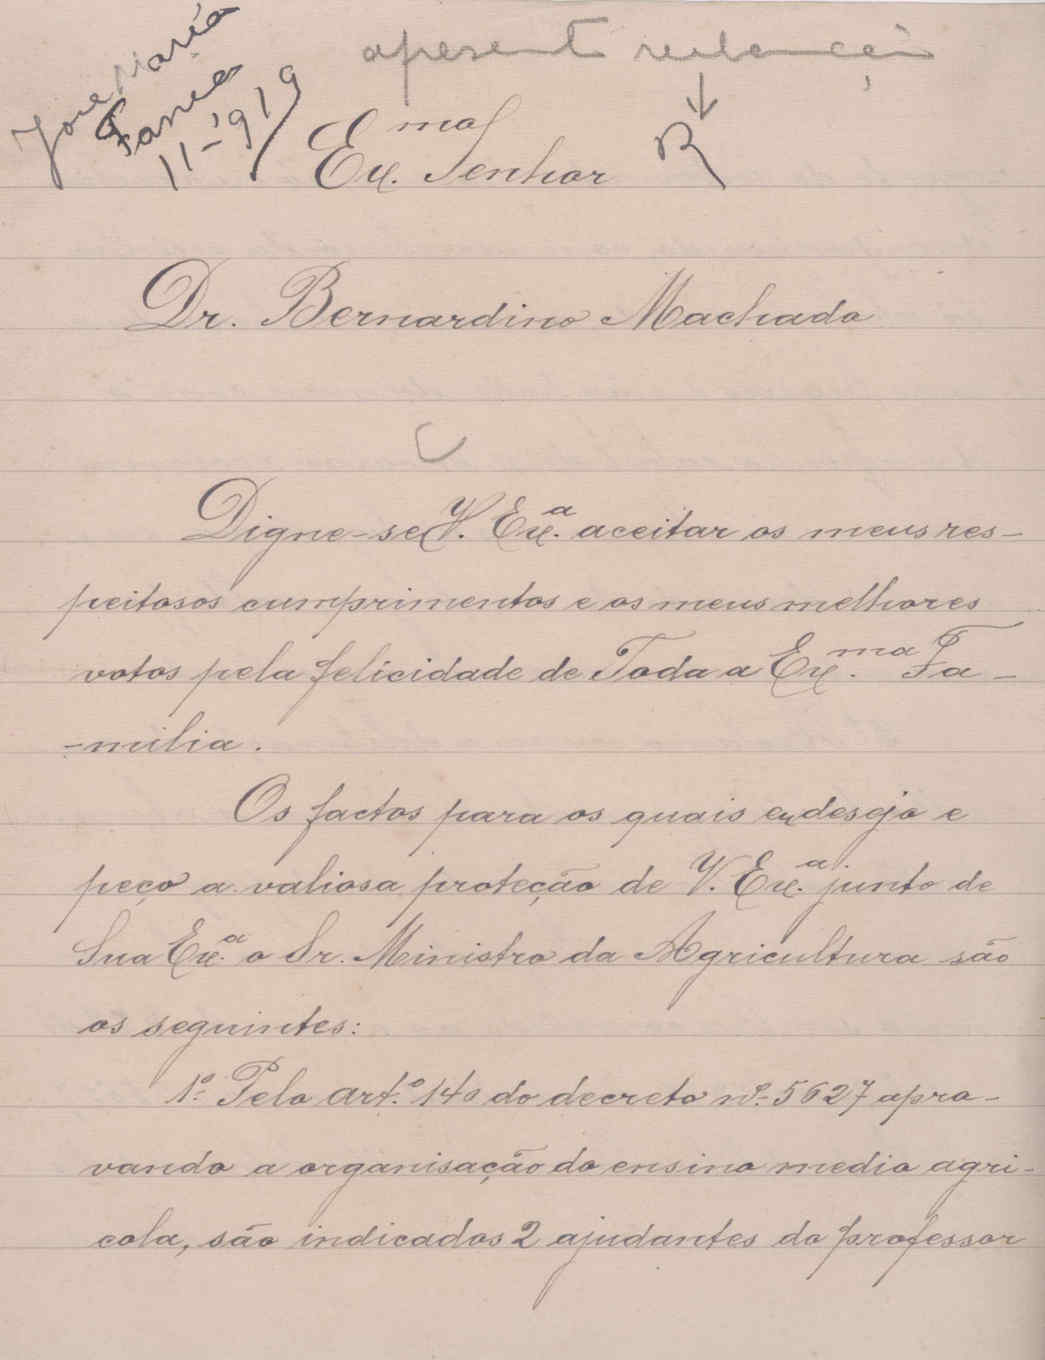 José Maria
11-919
apresent
Ex.mo Senhor
R
Dr. Bernardino Machado
Digne-se V. Ex.a aceitar os meus res-
peitosos cumprimentos e os meus melhores
votos pela felicidade de Toda a Ex.ma Fa-
-milia.
Os factos para os quais eu desejo e
peço a valiosa proteção de V. Ex.a junto de
Sua Ex.a o Sr. Ministro da Agricultura são
os seguintes:
1º Pelo art.º 140 do decreto nº 5627 apro-
vando a organisação do ensino medio agri-
cola, são indicados 2 ajudantes do professor